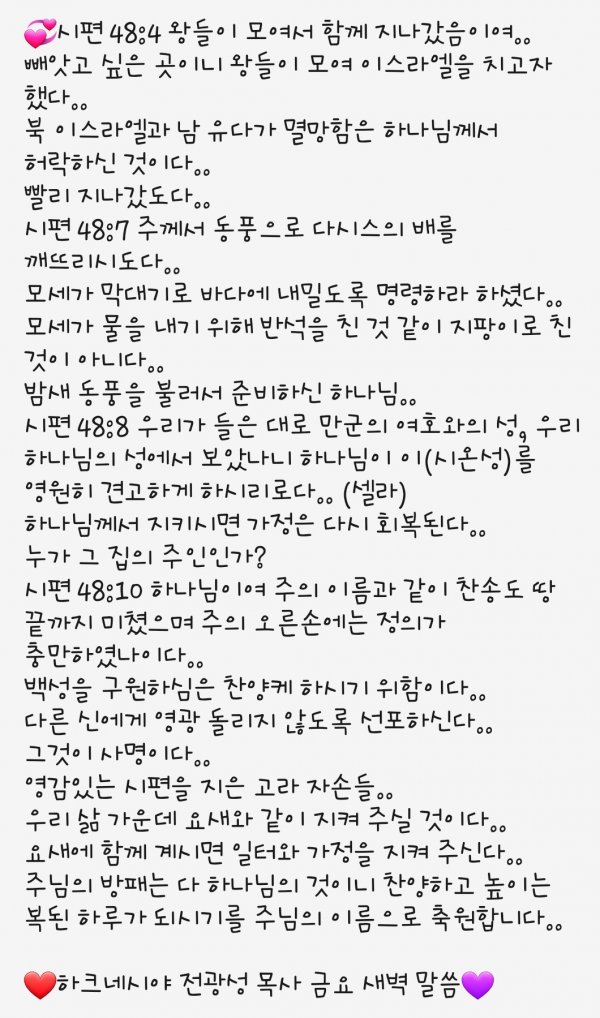 💞시편 48:4 왕들이 모여서 함께 지나갔음이여..
빼앗고 싶은 곳이니 왕들이 모여 이스라엘을 치고자
했다..
북 이스라엘과 남 유다가 멸망함은 하나님께서
허락하신 것이다..
빨리 지나갔도다..
시편 48:7 주께서 동풍으로 다시스의 배를
깨뜨리시도다..
모세가 막대기로 바다에 내밀도록 명령하라 하셨다..
모세가 물을 내기 위해 반석을 친 것 같이 지팡이로 친
것이 아니다..
밤새 동풍을 불러서 준비하신 하나님..
시편 48:8 우리가 들은 대로 만군의 여호와의 성, 우리
하나님의 성에서 보았나니 하나님이 이(시온성)를
영원히 견고하게 하시리로다.. (셀라)
하나님께서 지키시면 가정은 다시 회복된다..
누가 그 집의 주인인가?
시편 48:10 하나님이여 주의 이름과 같이 찬송도 땅
끝까지 미쳤으며 주의 오른손에는 정의가
충만하였나이다..
백성을 구원하심은 찬양케 하시기 위함이다..
다른 신에게 영광 돌리지 않도록 선포하신다..
그것이 사명이다..
영감있는 시편을 지은 고라 자손들..
우리 삶 가운데 요새와 같이 지켜 주실 것이다..
요새에 함께 계시면 일터와 가정을 지켜 주신다..
주님의 방패는 다 하나님의 것이니 찬양하고 높이는
복된 하루가 되시기를 주님의 이름으로 축원합니다..
❤️하크네시야 전광성 목사 금요 새벽 말씀💜